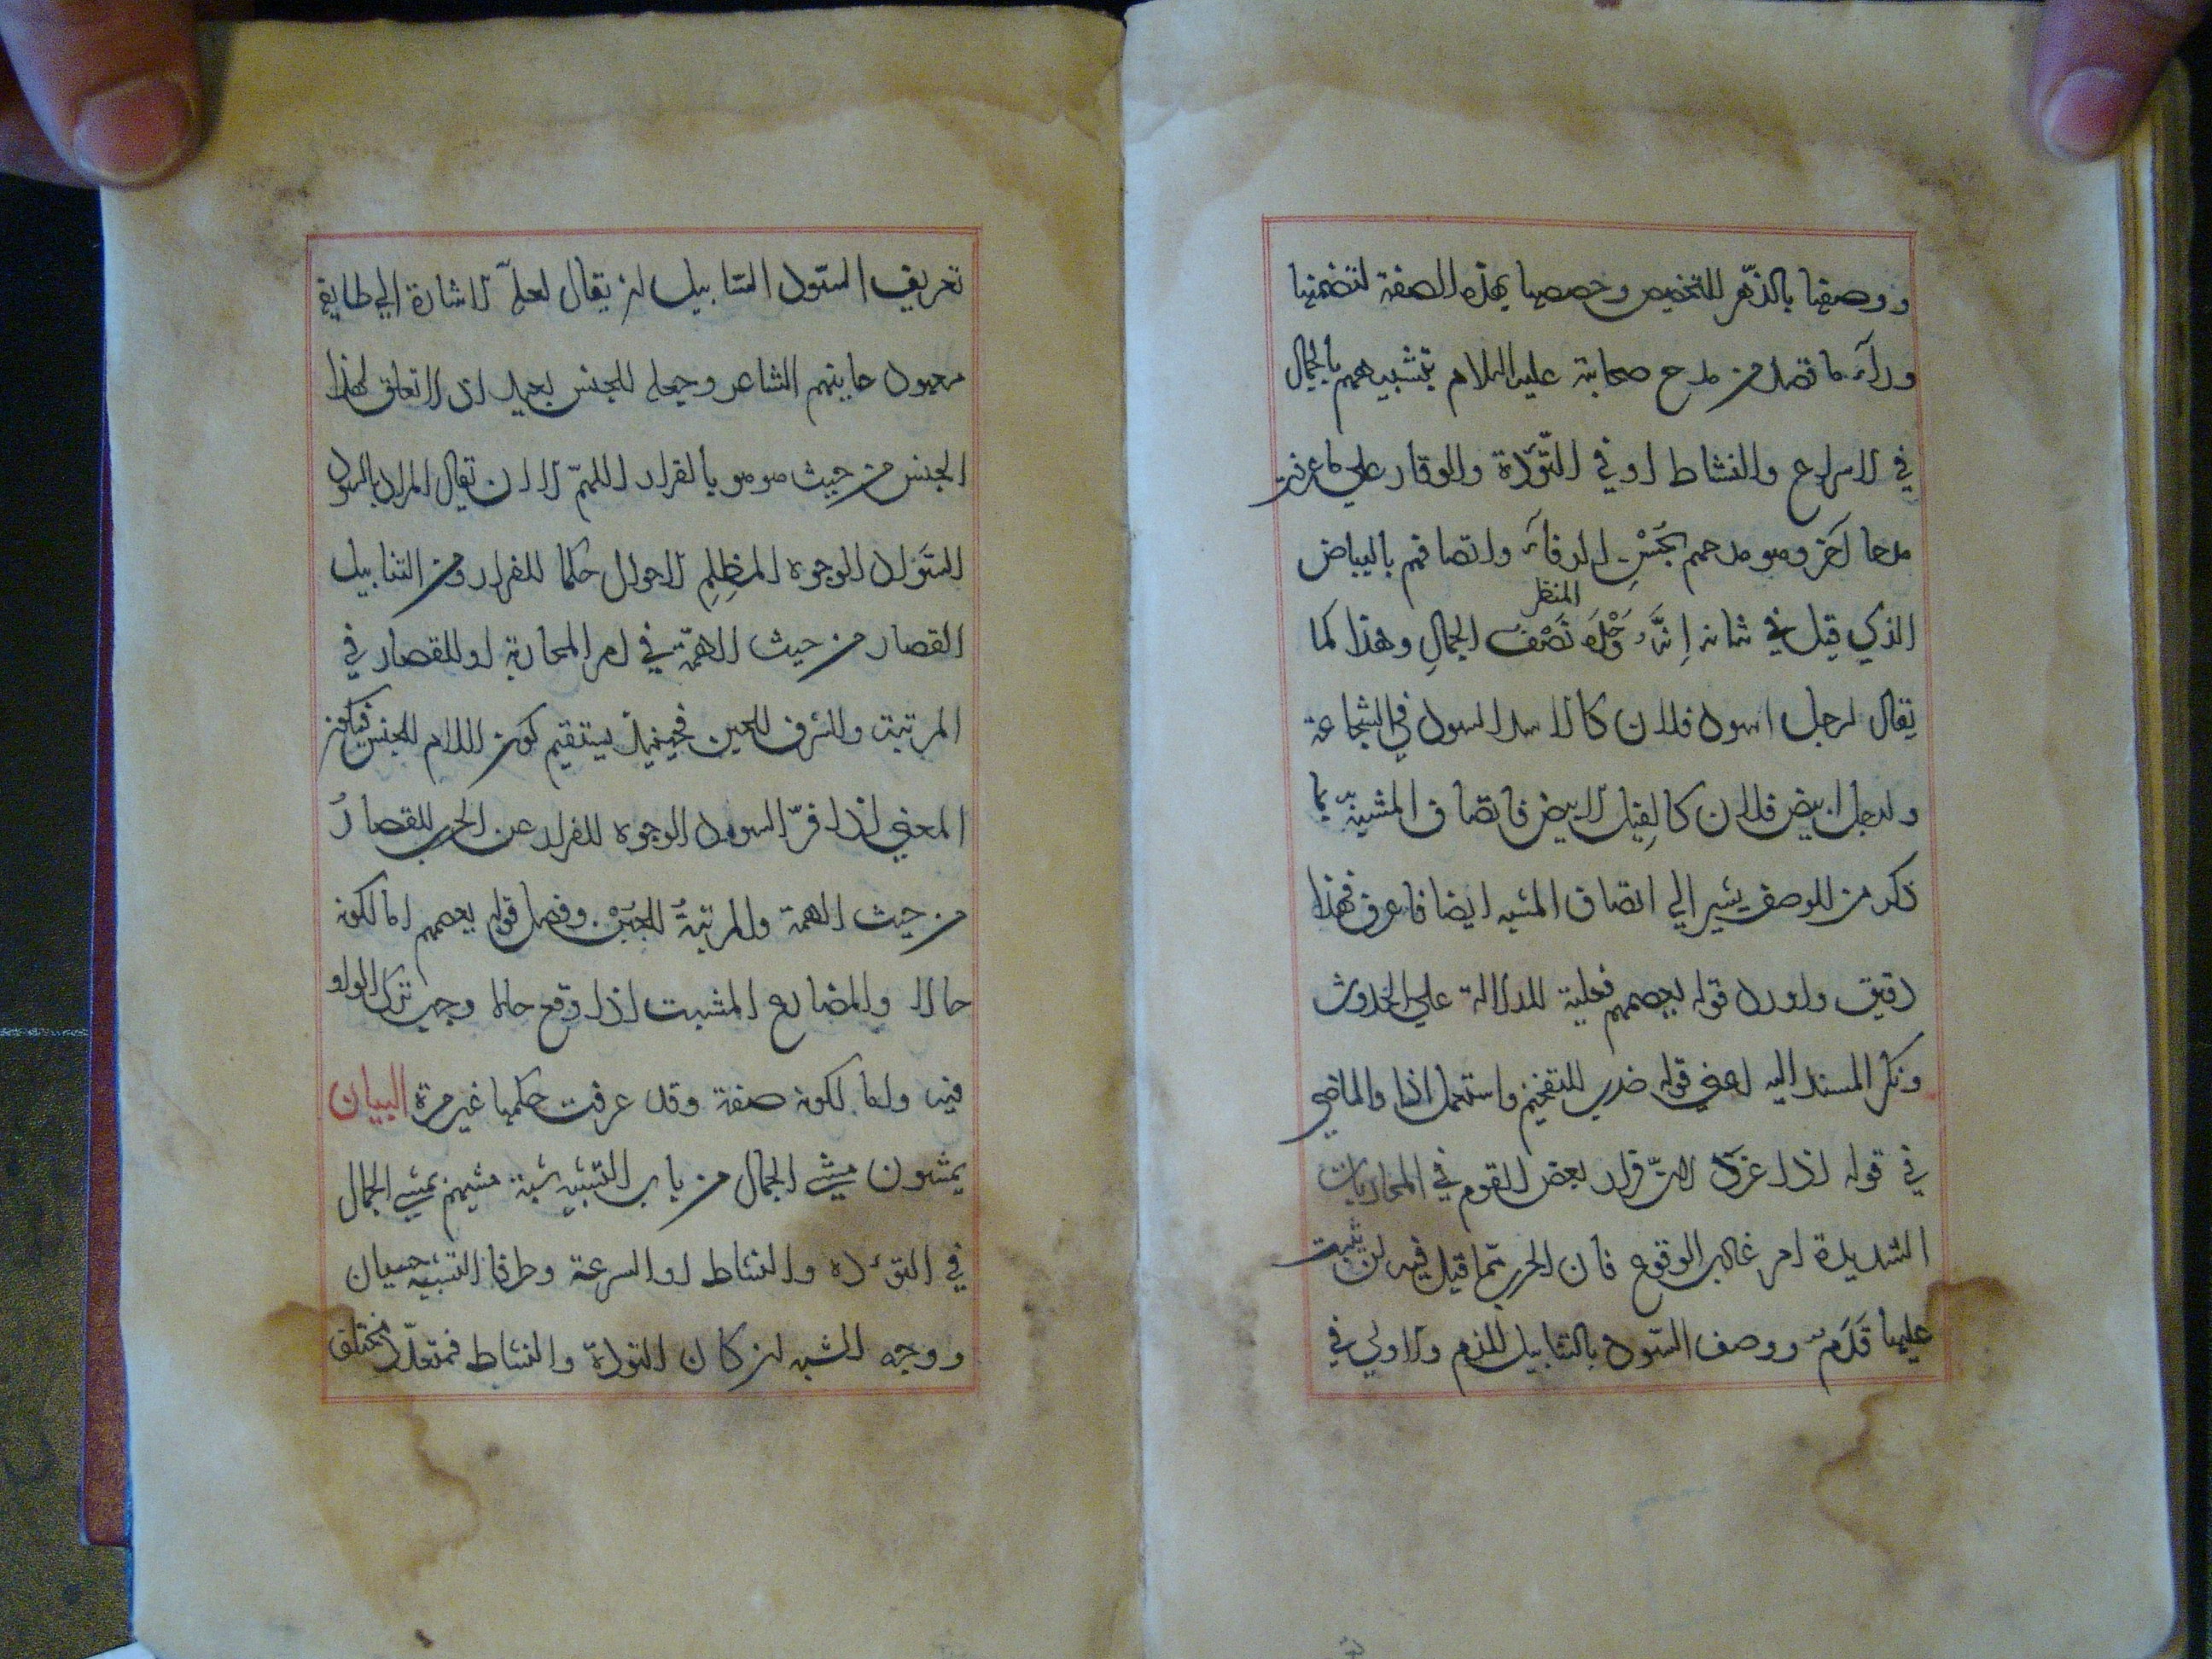 ووصفها بالزّهر للتخصيص وخصصها بهذه الصفة لتضمنها
وراء ما قصد من مدح صحابته عليه السلام بتشبيههم بالجمال
في الاسراع والنشاط او في التّؤدة والوقار علي ما عرفت
مدحا آخر وهو مدحهم بحُسْنِ الرفاء واتصافهم بالبياض
المنظر
الذي قيل في شانه إنَّهُ وَحْدَهُ نَصْفُ الجمالِ وهذا كما
يقال لرجل اسود فلان كالاسد الاسود في الشجاعة
ولرجل ابيض فلان كالفيل الابيض فاتصاف المشبه به بما
ذكر من الوصف يشير الي اتصاف المشبه ايضا فاعرف فهذا
دقيق واورد قوله يعصمهم فعلية للدلالة علي الحدوث
ونكر المسند اليه اعني قوله ضرب للتفخيم واستعمل اذا والماضي
في قوله اذا عرّد لانّ فرار بعض القوم في المحاربات
الشديدة امر غالب الوقوع فان الحرب مما قيل فيه لن يثبت
عليها قَدَمٌ ووصف السّود بالتنابيل للذم والاولي في
تعريف السّود التنابيل ان يقال لعلّه الاشارة الي طايفة
معهود جاء بينهم الشاعر وجعله للجنس بعيد اذ لا تعلق لهذا
الجنس من حيث هو هو بالفرار اللهمّ الا ان يقال المراد بالسود
السّود الوجوه المظلِمِ الاحوال حكما للفرار ومن التنابيل
القصار من حيث الهمّة في امر المحاربة او للقصار في
المرتبة والشرف للجبن فحينئذ يستقيم كون اللام للجنس فيكون
المعني اذا فرّ السود الوجوه للفرار عن الحرب القصارُ
من حيث الهمة والمرتبةُ للجُبْن وفصل قوله يعصمهم اما لكونه
حالا والمضارع المثبت اذا وقع حالا وجب ترك الواو
فيه واما لكونه صفة وقد عرفت حكمها غير مرة البيان
يمشون مشي الجمال من باب التشبيه شبه مشيهم بمشي الجمال
في التؤده والنشاط او السرعة وطرفا التشبيه حسيان
ووجه الشبه ان كان التؤدة والنشاط فمتعدّد مختلف